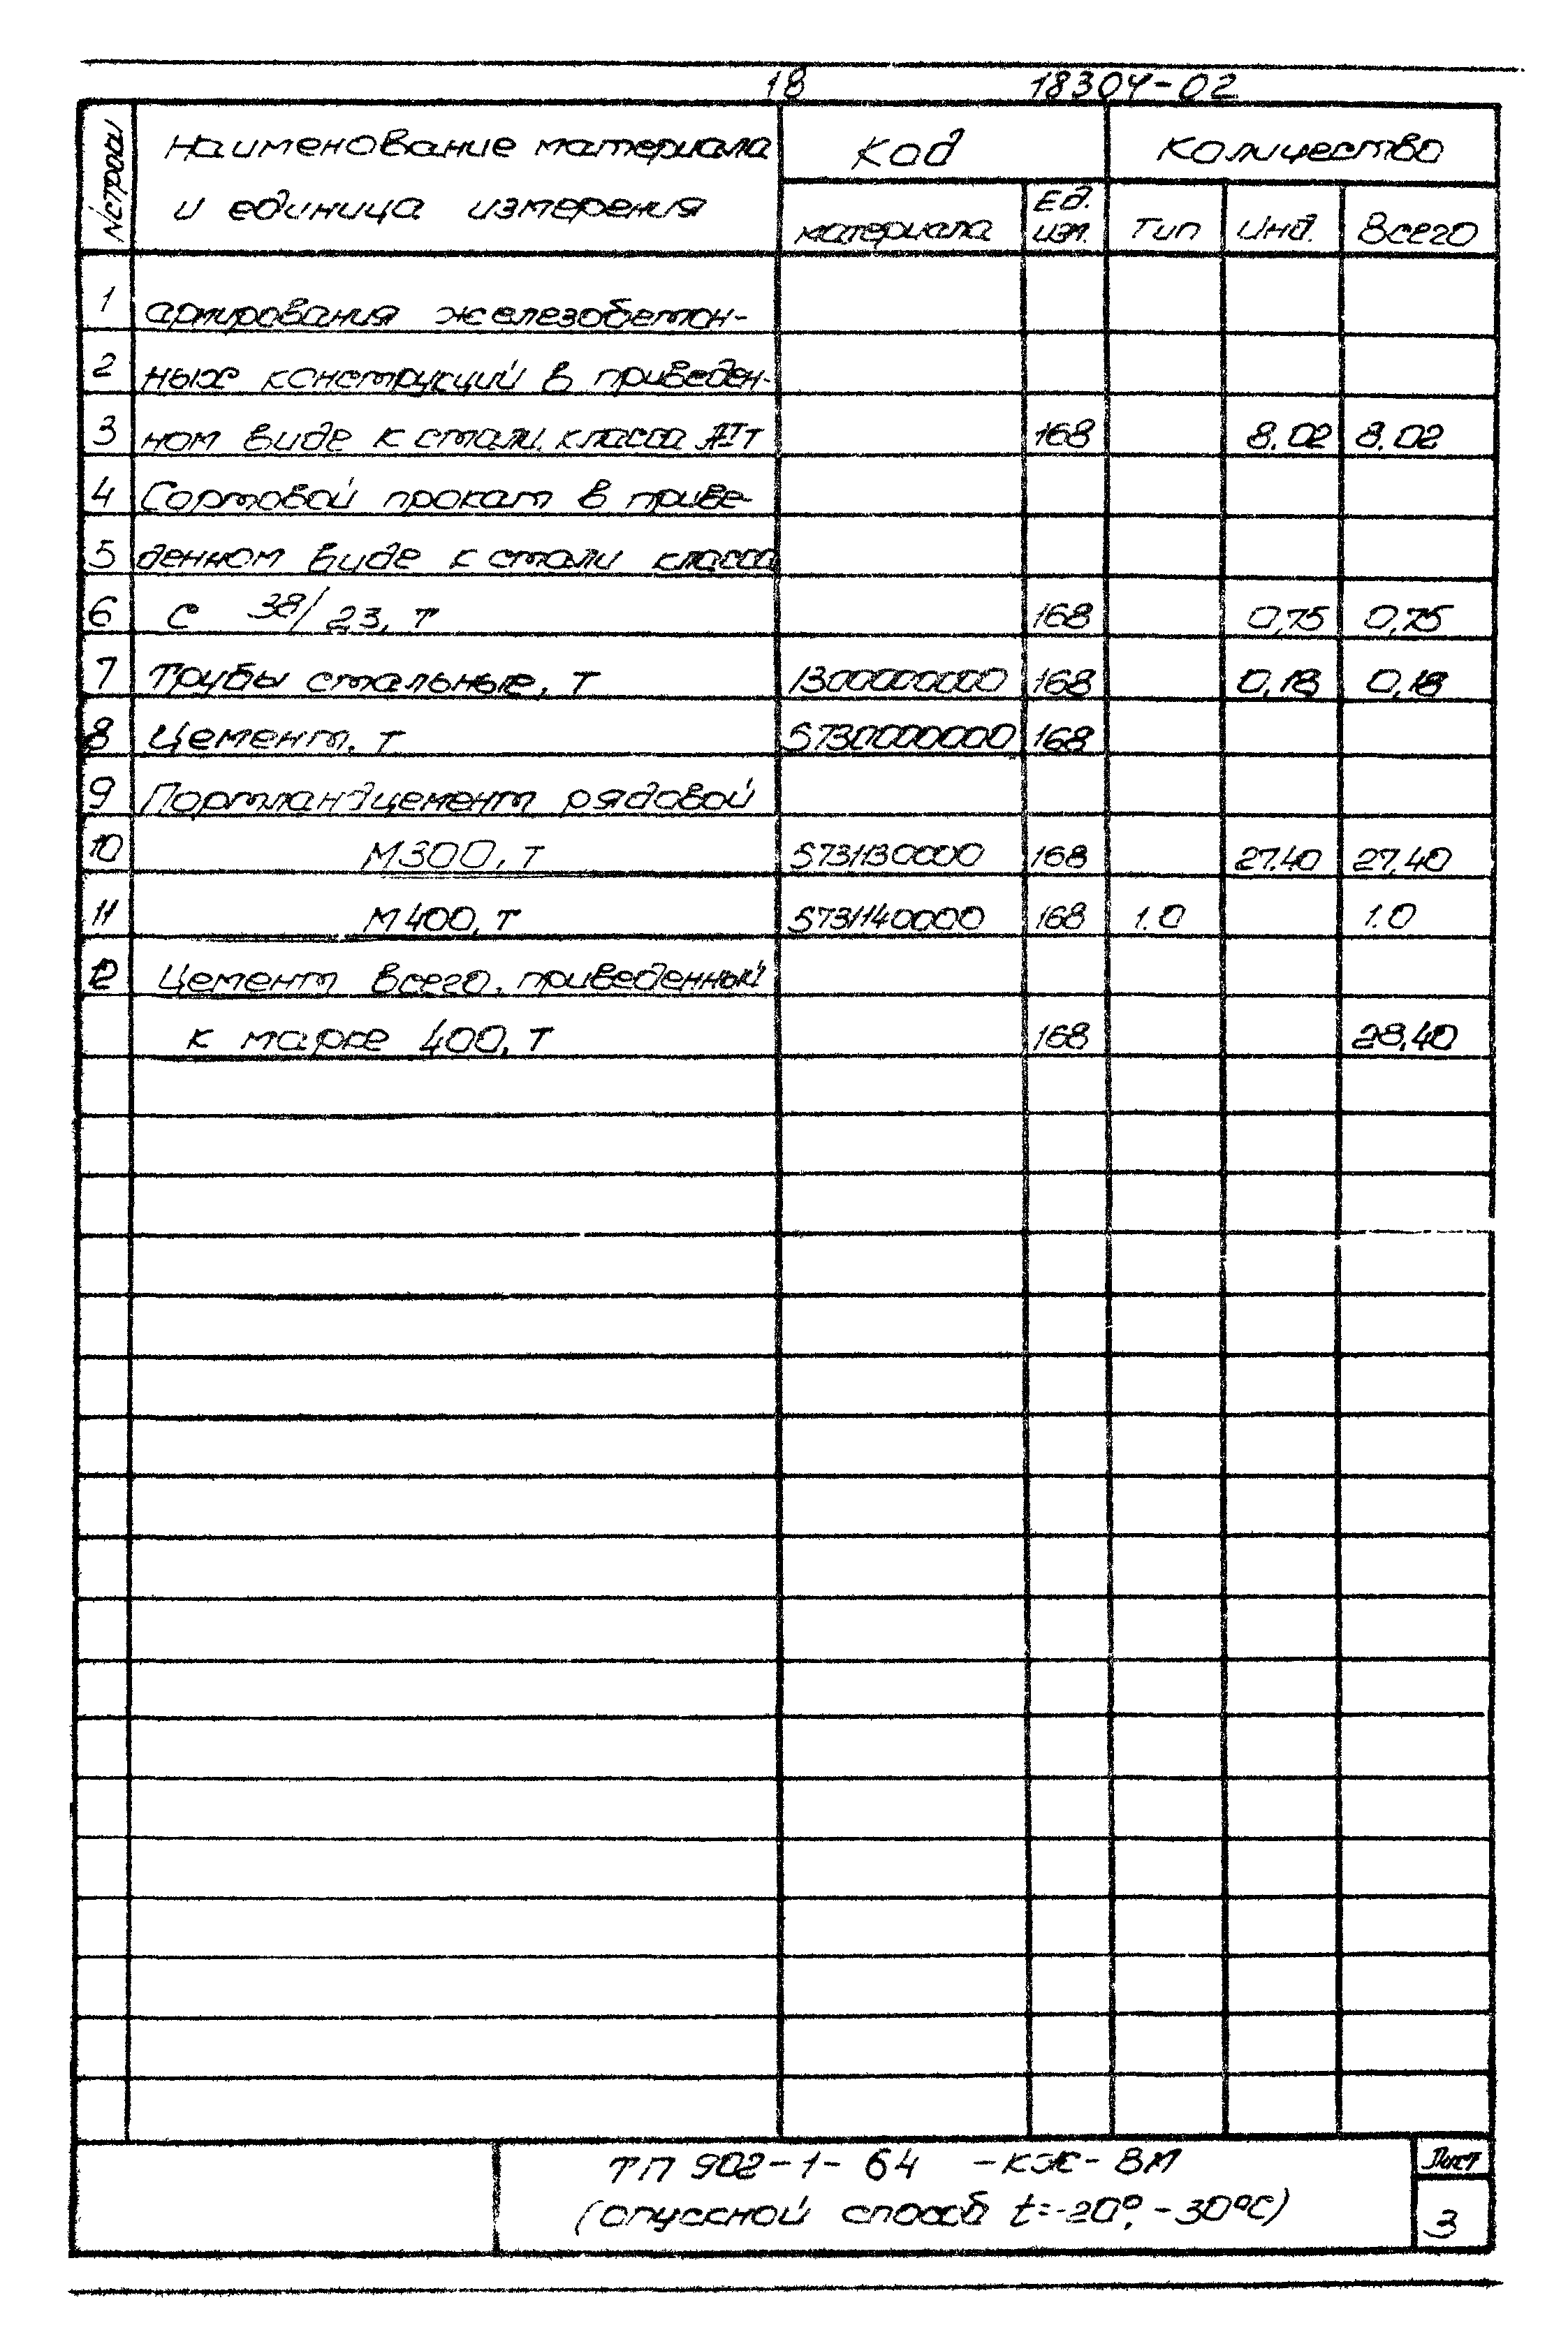 18 18304-02
№ строки Наименование материала Код Количество
и единица измерения материала Ед. изм. Тип Инд. Всего
1 армирования железобетон-
2 ных конструкций в приведен-
3 ном виде к стали класса АI т 168 8.02 8.02
4 Сортовой прокат в приве-
5 денном виде к стали класса
6 С 38/23, т 168 0,75 0,75
7 Трубы стальные, т 1300000000 168 0,18 0,18
8 Цемент, т 5730000000 168
9 Портландцемент рядовой
10 М300, т 5731130000 168 27.40 27,40
11 М400, т 5731140000 168 1.0 1.0
12 Цемент всего, приведенный
к марке 400, т 168 28,40
ТП 902-1-64 -КЖ-ВМ Лист
(опускной способ t=-20°, -30°С) 3